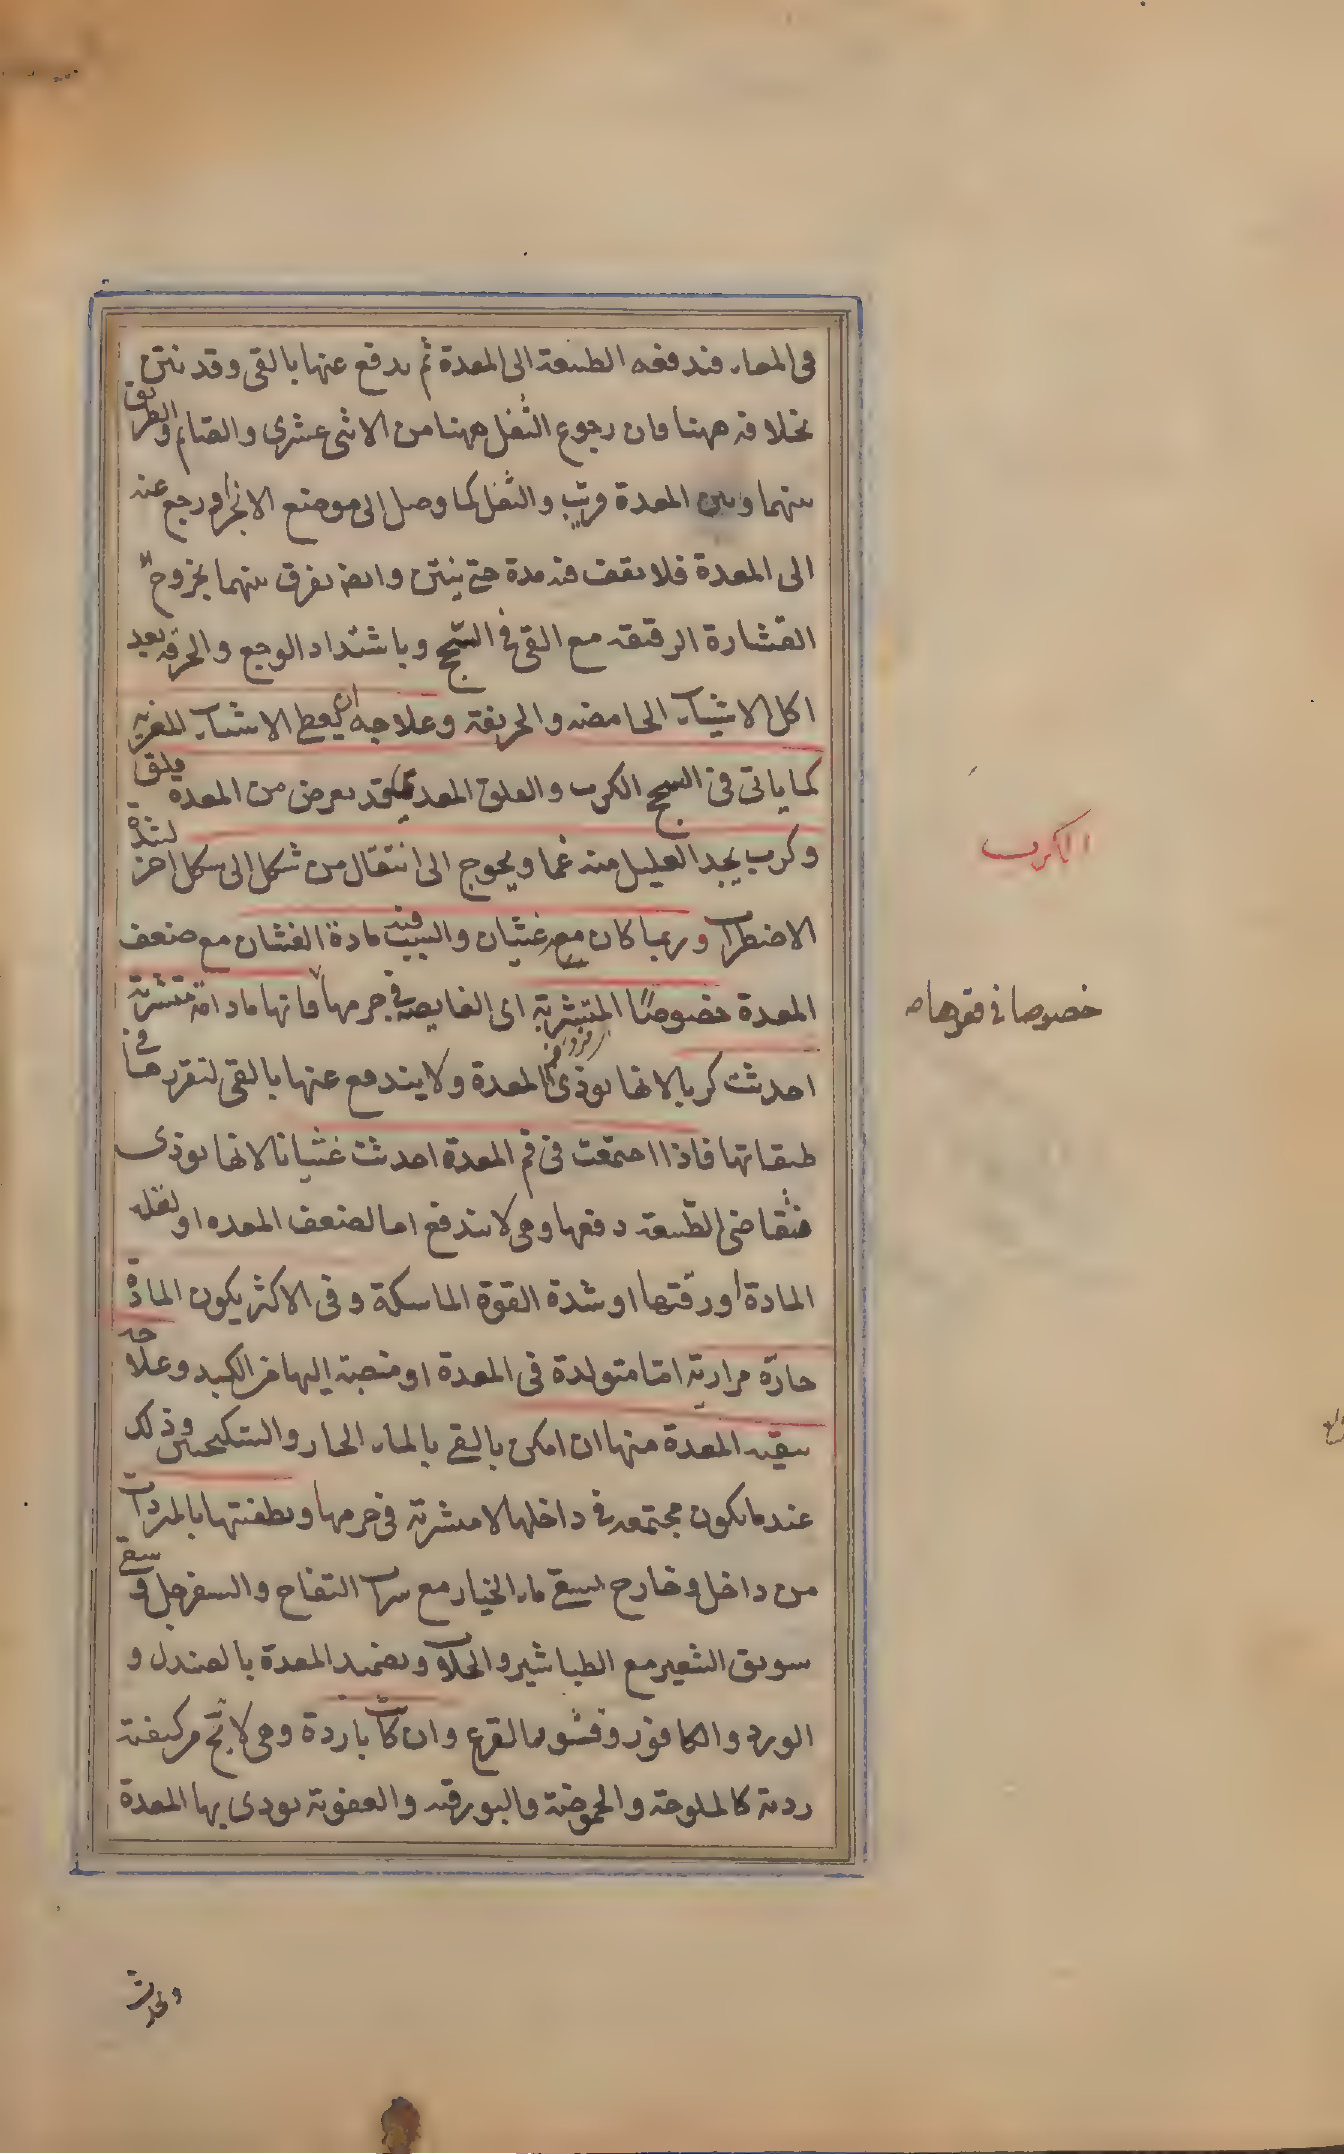 فى المعاء فتدفعه الطبيعة الى المعدة ثم يدفع عنها بالقى وقد نتن
بخلافه ههنا فان رجوع الثفل ههنا من الاثنى عشرى والصائم والطريق
بينهما وبين المعدة قريب والثفل كما وصل الى موضع الانخراق رجع عنه
الى المعدة فلا يقف فيه مدة حتى ينتن وايضا يفرق بينهما بخروج
القشارة الرقيقة مع القى فى السحج وباشتداد الوجع والحرقة بعد
اكل الاشياء الحامضة والحريفة وعلاجه ان يعطى الاشياء المغرية
كما ياتى فى السحج الكرب والقلق المعدى قد يعرض من المعدة قلق
وكرب يجد العليل منه غما ويحوج الى انتقال من شكل الى شكل اخر لشدة
الاضطراب وربما كان مع غشيان والسبب فيه مادة الغشيان مع ضعف
المعدة خصوصا المتشربة اى الغايصة فى جرمها فانها مادامت متشربة
احدثت كربا لانها توذى المعدة ولا يندفع عنها بالقى لتقررها فى
طبقاتها فاذا اجتمعت فى فم المعدة احدثت غشيانا لانها توذى
فتقاضى الطبيعة دفعها وهى لا تندفع اما لضعف المعدة او لغلظ
المادة او رقتها او شدة القوة الماسكة وفى الاكثر يكون المادة
حارة مرارية اما متولدة فى المعدة او منصبة اليها من الكبد وعلاجه
تنقية المعدة منها ان امكن بالقى بالماء الحار والسكنجبين وذلك
عند ما يكون مجتمعة فى داخلها لا متشربة فى جرمها وتطفئتها بالمبردات
من داخل وخارج بسقى ماء الخيار مع شراب التفاح والسفرجل وسقى
سويق الشعير مع الطباشير والجلاب وتضميد المعدة بالصندل و
الورد والكافور وقشور القرع وان كانت باردة وهى لا تخ من كيفية
ردية كالملوحة والحموضة والبورقية والعفونة يوذى بها المعدة
الكرب
خصوصا فى قعرها